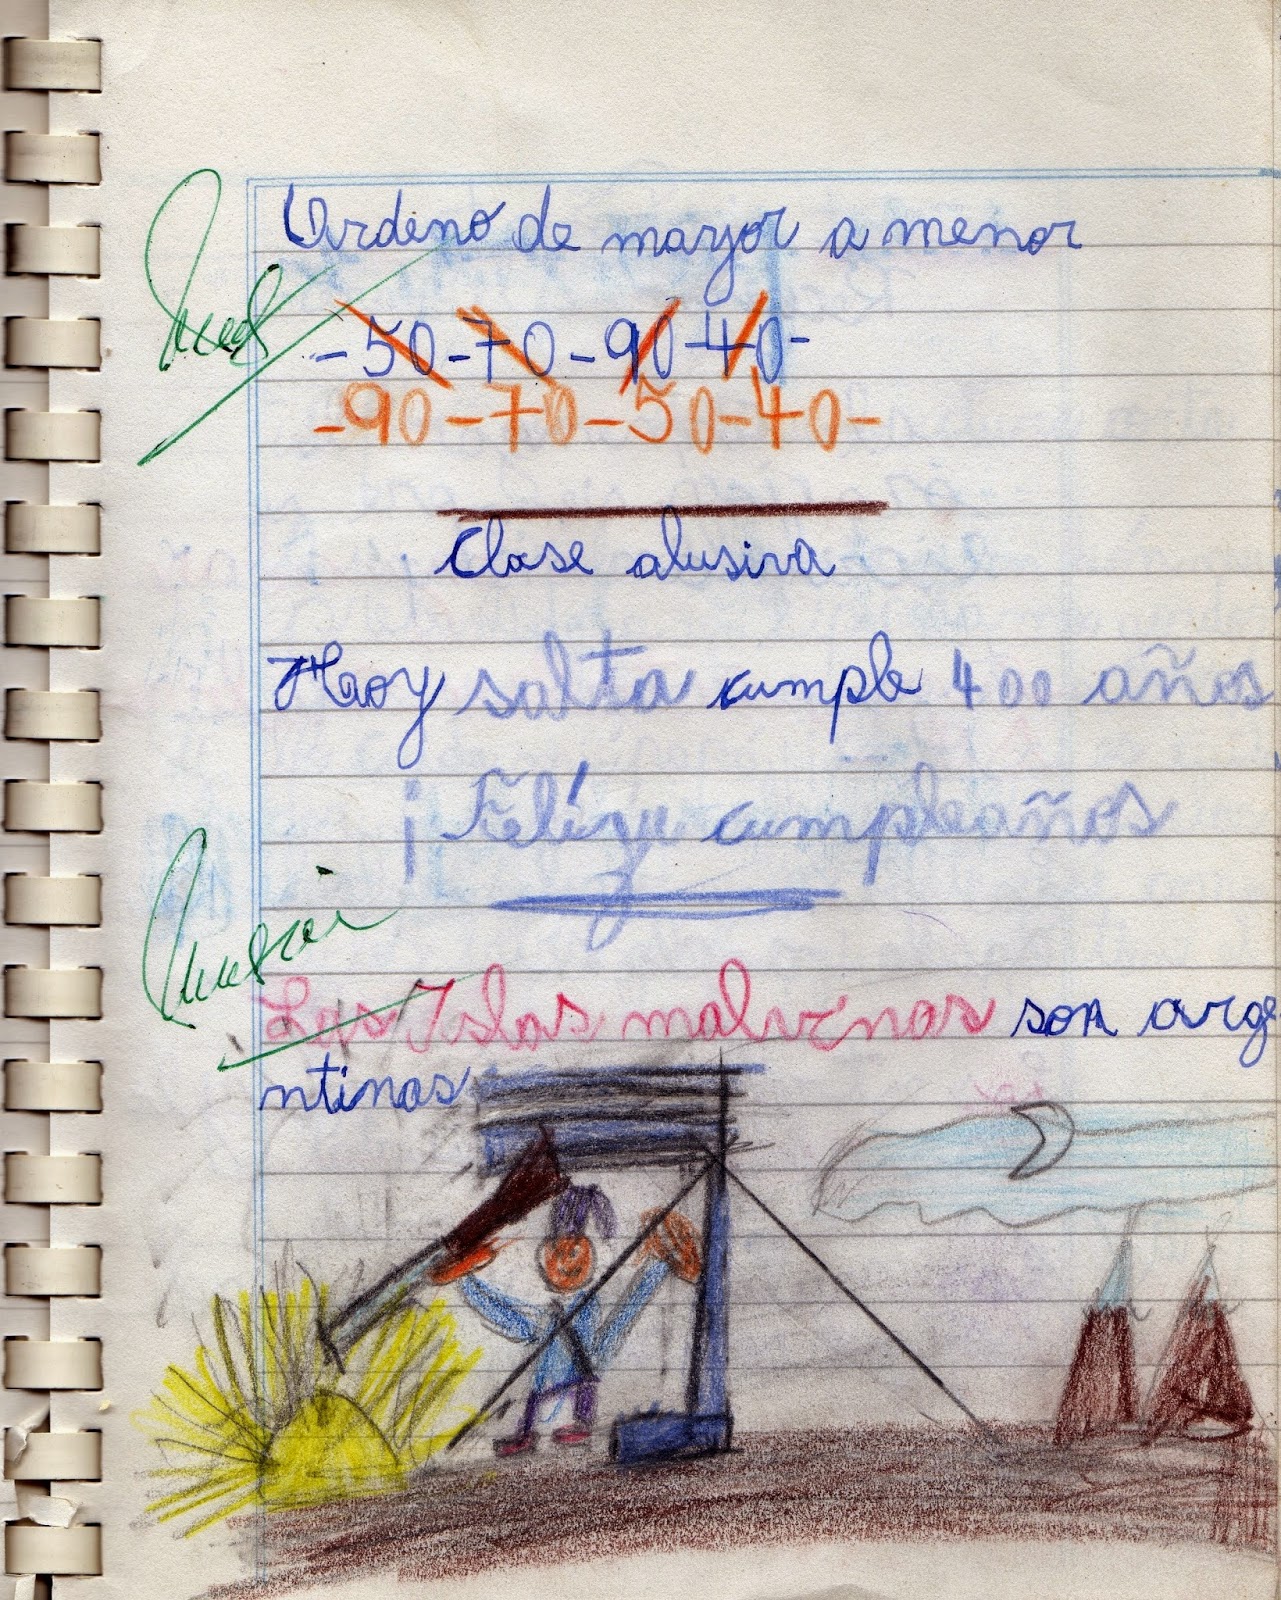 Ordeno de mayor a menor
-50-70-90-40-
-90-70-50-40-
Clase alusiva
Hoy salta cumple 400 años
¡Felíz cumpleaños
Las Islas malvinas son arge
ntinas